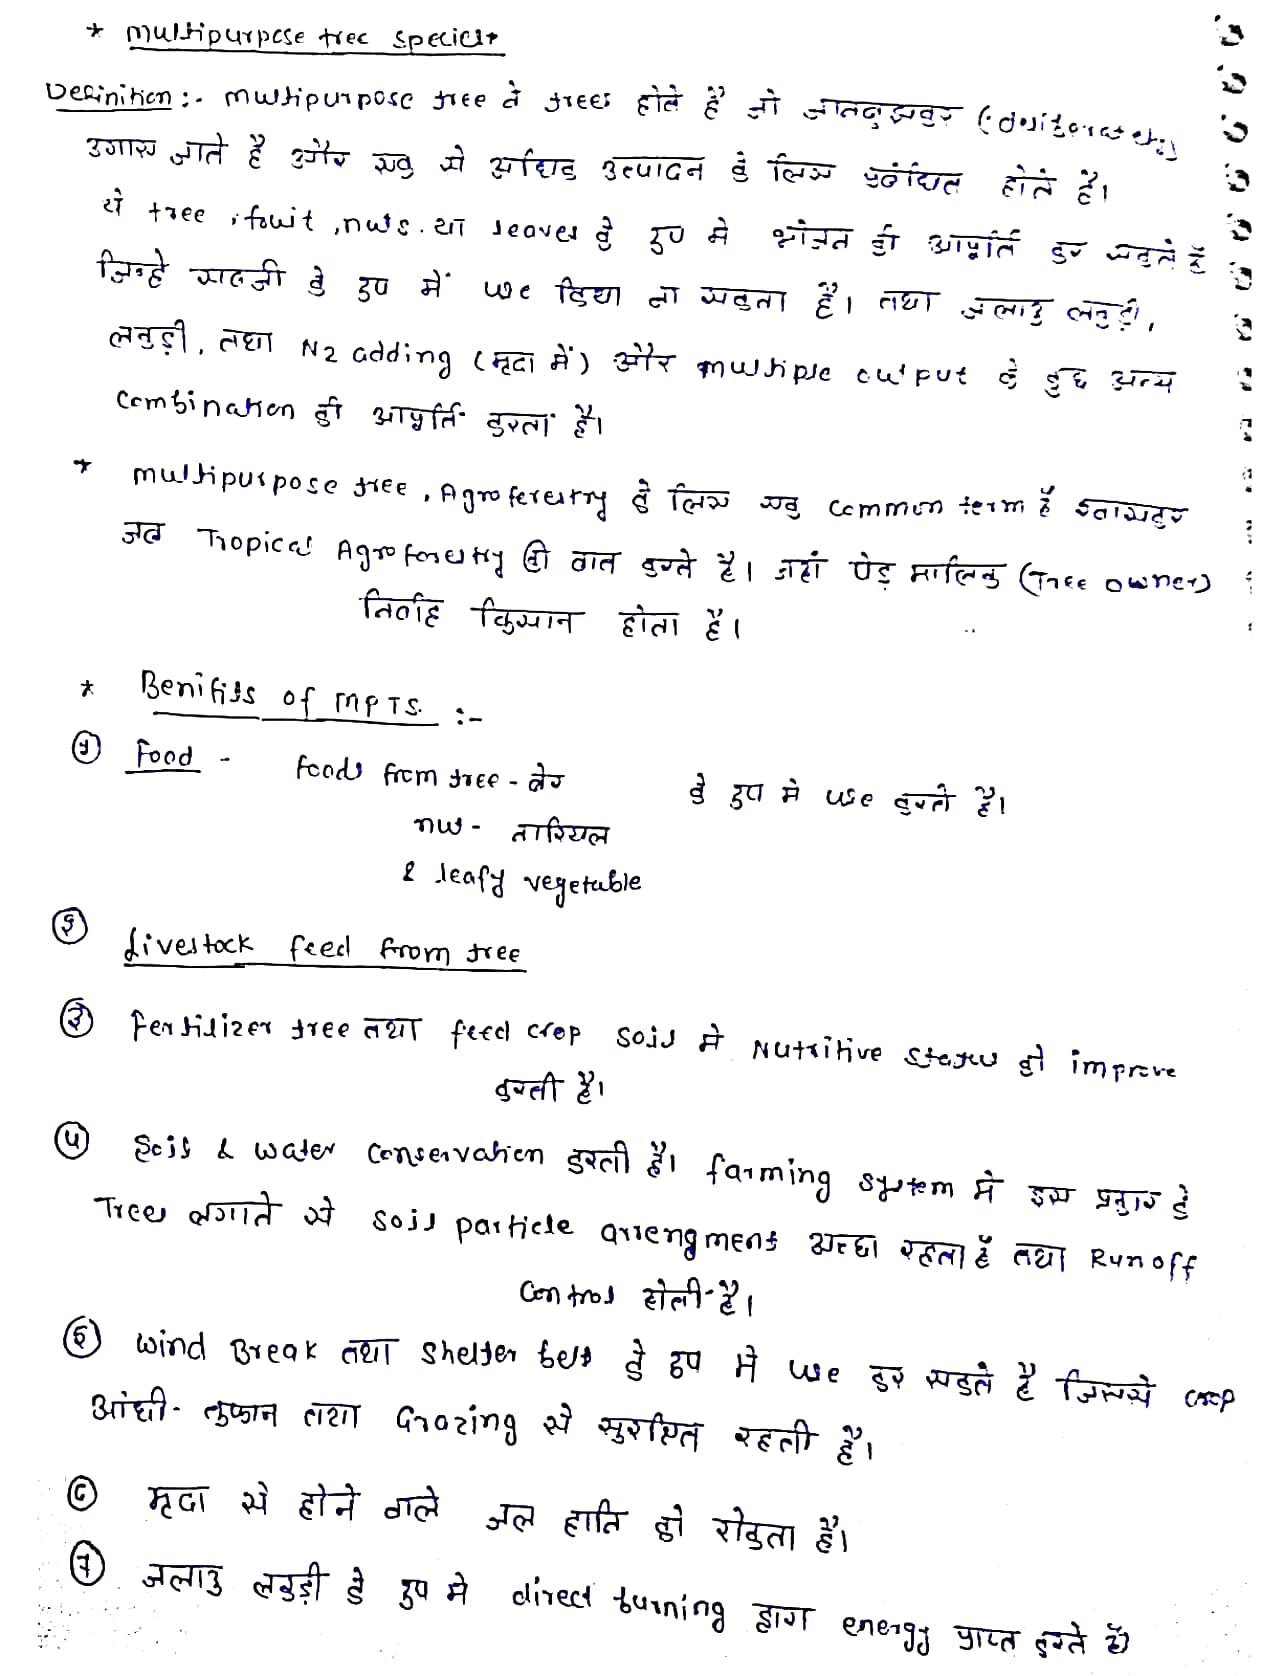 * Multipurpose tree species
Definition :- Multipurpose tree वे trees होते है जो जानबुझकर (deliberately)
उगाए जाते है और एक से अधिक उत्पादन के लिए प्रबंधित होते है।
ये tree, fruit, nuts. या leaves के रूप मे भोजन की आपूर्ति कर सकते है
जिन्हे सब्जी के रूप में use किया जा सकता है। तथा जलाउ लकड़ी,
लकड़ी, तथा N2 adding (मृदा में) और multiple output के कुछ अन्य
Combination की आपूर्ति करता है।
* multipurpose tree, Agroforestry के लिए एक common term है खासकर
जब Tropical Agroforestry की बात करते है। जहां पेड़ मालिक (Tree owner)
निर्वाह किसान होता है।
* Benifits of MPTS. :-
① Food - Foods from tree - बेर के रूप मे use करते है।
nut - नारियल
& leafy vegetable
② Livestock feed from tree
③ Fertilizer tree तथा feed crop soil मे Nutritive status को improve
करती है।
④ Soil & water conservation करती है। farming system मे इस प्रकार के
Trees लगाने से soil particle arrengment अच्छा रहता है तथा Runoff
Control होती है।
⑤ Wind Break तथा Shelter belt के रूप मे use कर सकते है जिससे crop
आंधी - तुफान तथा Grazing से सुरक्षित रहती है।
⑥ मृदा से होने वाले जल हानि को रोकता है।
⑦ जलाउ लकड़ी के रूप मे direct burning द्वारा energy प्राप्त करते है